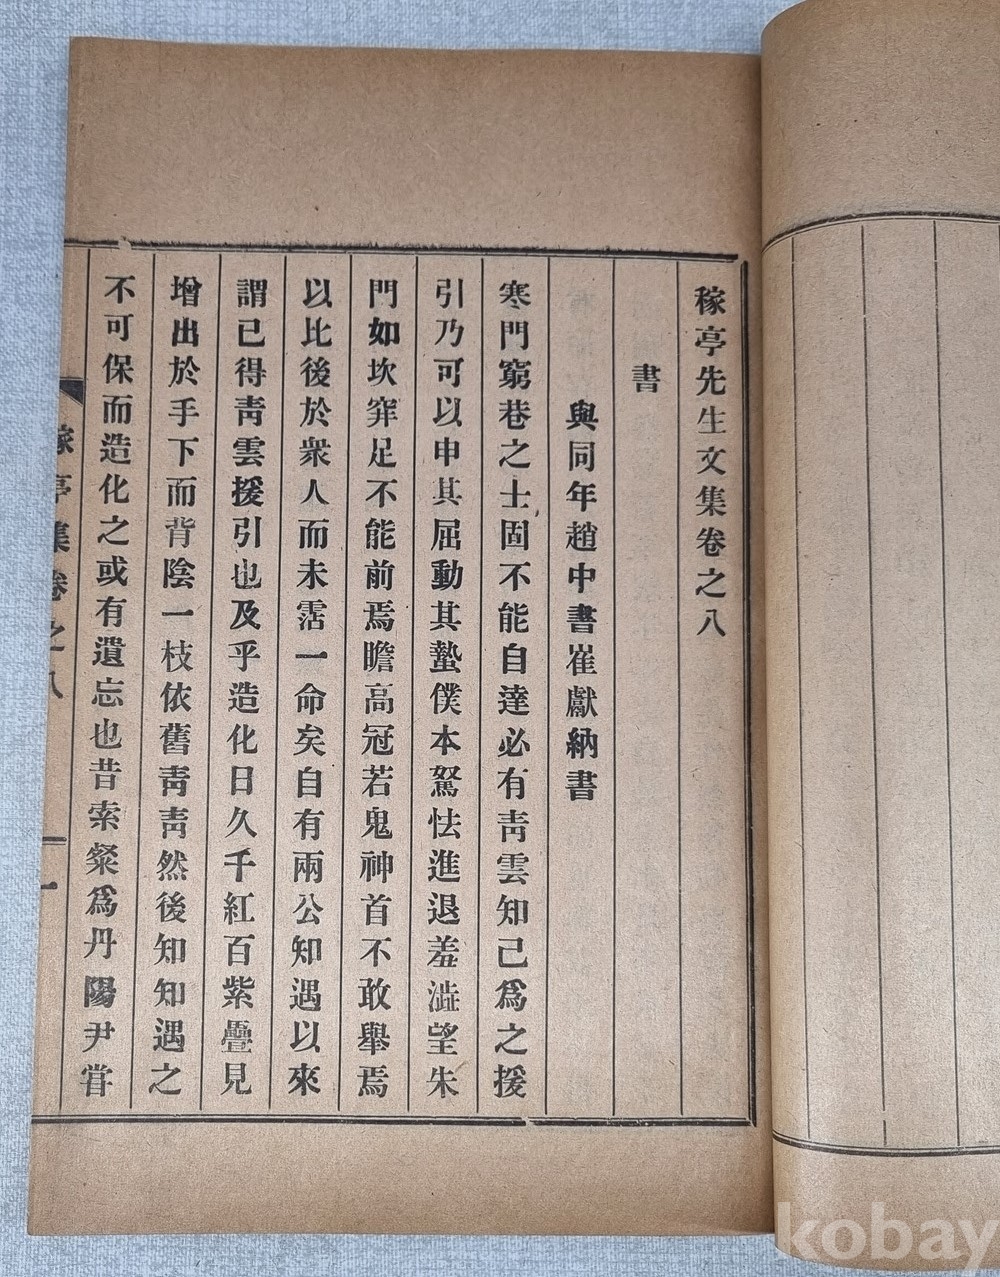 稼亭先生文集卷之八
書
與同年趙中書崔獻納書
寒門窮巷之士固不能自達必有靑雲知己爲之援
引乃可以申其屈動其蟄僕本駑怯進退羞澁望朱
門如坎穽足不能前焉瞻高冠若鬼神首不敢舉焉
以比後於衆人而未霑一命矣自有兩公知遇以來
謂已得靑雲援引也及乎造化日久千紅百紫疊見
增出於手下而背陰一枝依舊靑靑然後知知遇之
不可保而造化之或有遺忘也昔索粲爲丹陽尹嘗
稼亭集卷之八 一
kobay